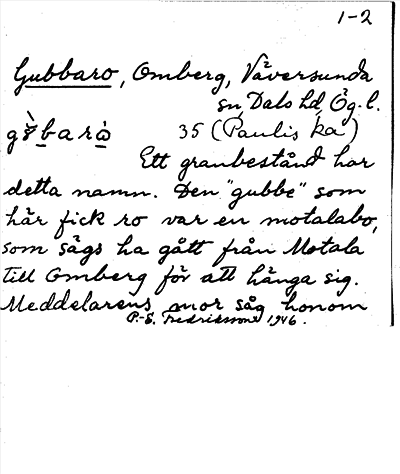 1-2
Gubbaro, Omberg, Väversunda
sn, Dals hd, Ög. l.
35 (Paulis ka)
Ett granbestånd har
detta namn. Den "gubbe" som
här fick ro var en motalabo,
som sägs ha gått från Motala
till Omberg för att hänga sig.
Meddelarens mor såg honom
P.-S. Fredriksson 1946.